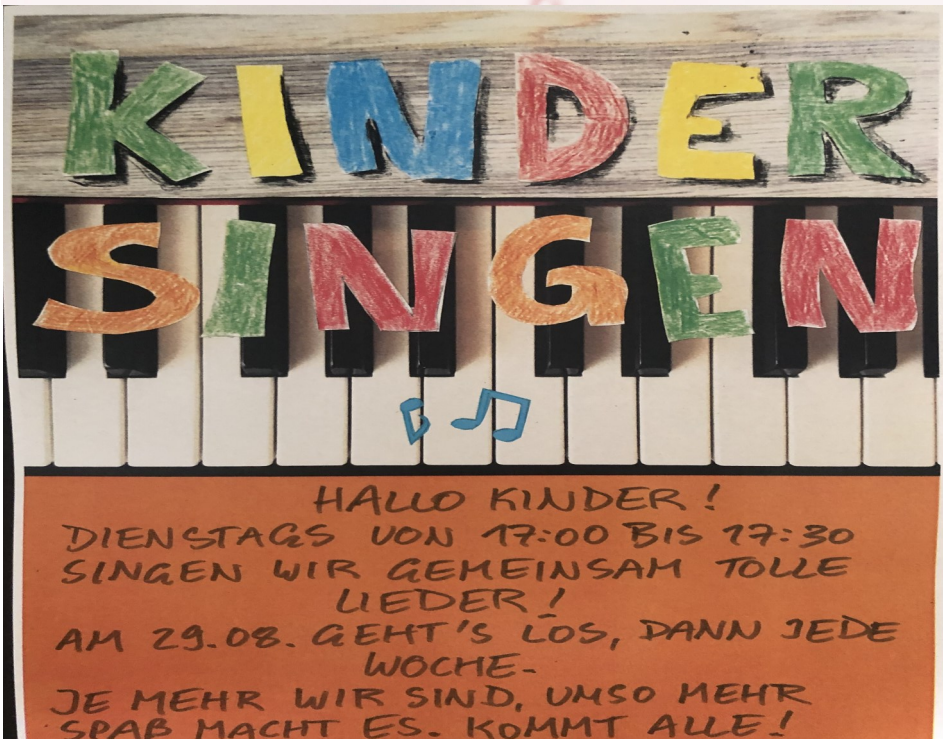 KINDER
SINGEN
HALLO KINDER!
DIENSTAGS VON 17:00 BIS 17:30
SINGEN WIR GEMEINSAM TOLLE
LIEDER!
AM 29.08. GEHT'S LOS, DANN JEDE
WOCHE.
JE MEHR WIR SIND, UMSO MEHR
SPAß MACHT ES. KOMMT ALLE!